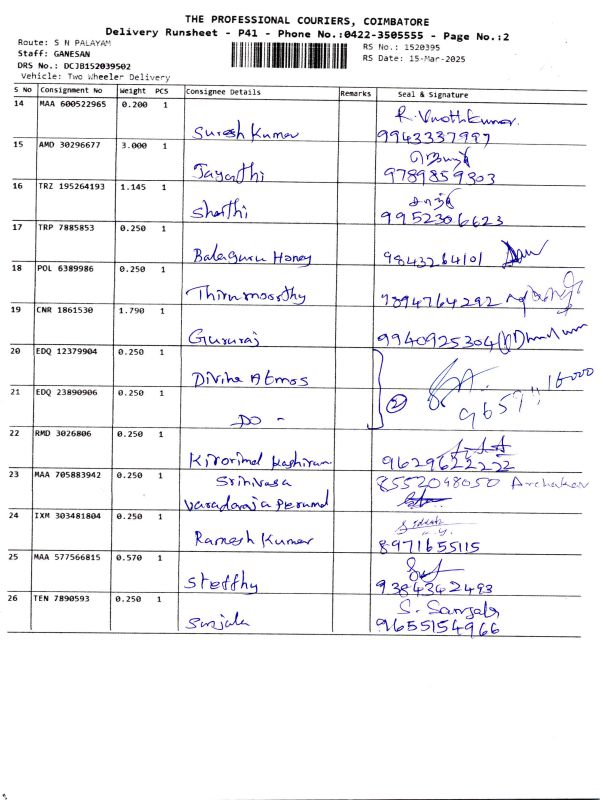 THE PROFESSIONAL COURIERS, COIMBATORE
Delivery Runsheet - P41 - Phone No.:0422-3505555 - Page No.:2
Route: S N PALAYAM
RS No.: 1520395
Staff: GANESAN
RS Date: 15-Mar-2025
DRS No.: DCJB152039502
Vehicle: Two Wheeler Delivery
S No Consignment No Weight PCS Consignee Details Remarks Seal & Signature
14 MAA 600522965 0.200 1 R. Vinothkumar.
Suresh Kumar 9943337997
15 AMD 30296677 3.000 1
Jayanthi 9789859303
16 TRZ 195264193 1.145 1
Shanthi 9952306623
17 TRP 7885853 0.250 1
Balaguru Honey 9843264101
18 POL 6389986 0.250 1
Thirumoorthy 9894764292
19 CNR 1861530 1.790 1
Gururaj 9940925304
20 EDQ 12379904 0.250 1
Divine Atmos
21 EDQ 23890906 0.250 1 2
DO -
22 RMD 3026806 0.250 1
Kirorimal Kashiram 9629622222
23 MAA 705883942 0.250 1 Srinivasa 8552048050 Archakar
Varadaraja Perumal
24 IXM 303481804 0.250 1
Ramesh Kumar 8971655115
25 MAA 577566815 0.570 1
Steffhy 9384342493
26 TEN 7890593 0.250 1 S. Sanjala
Sanjala 9655154966